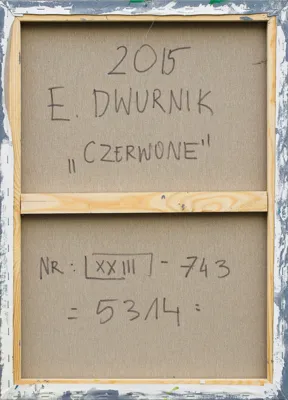 2015
E. DWURNIK
„CZERWONE"
NR: XXIII - 743
= 5314 =